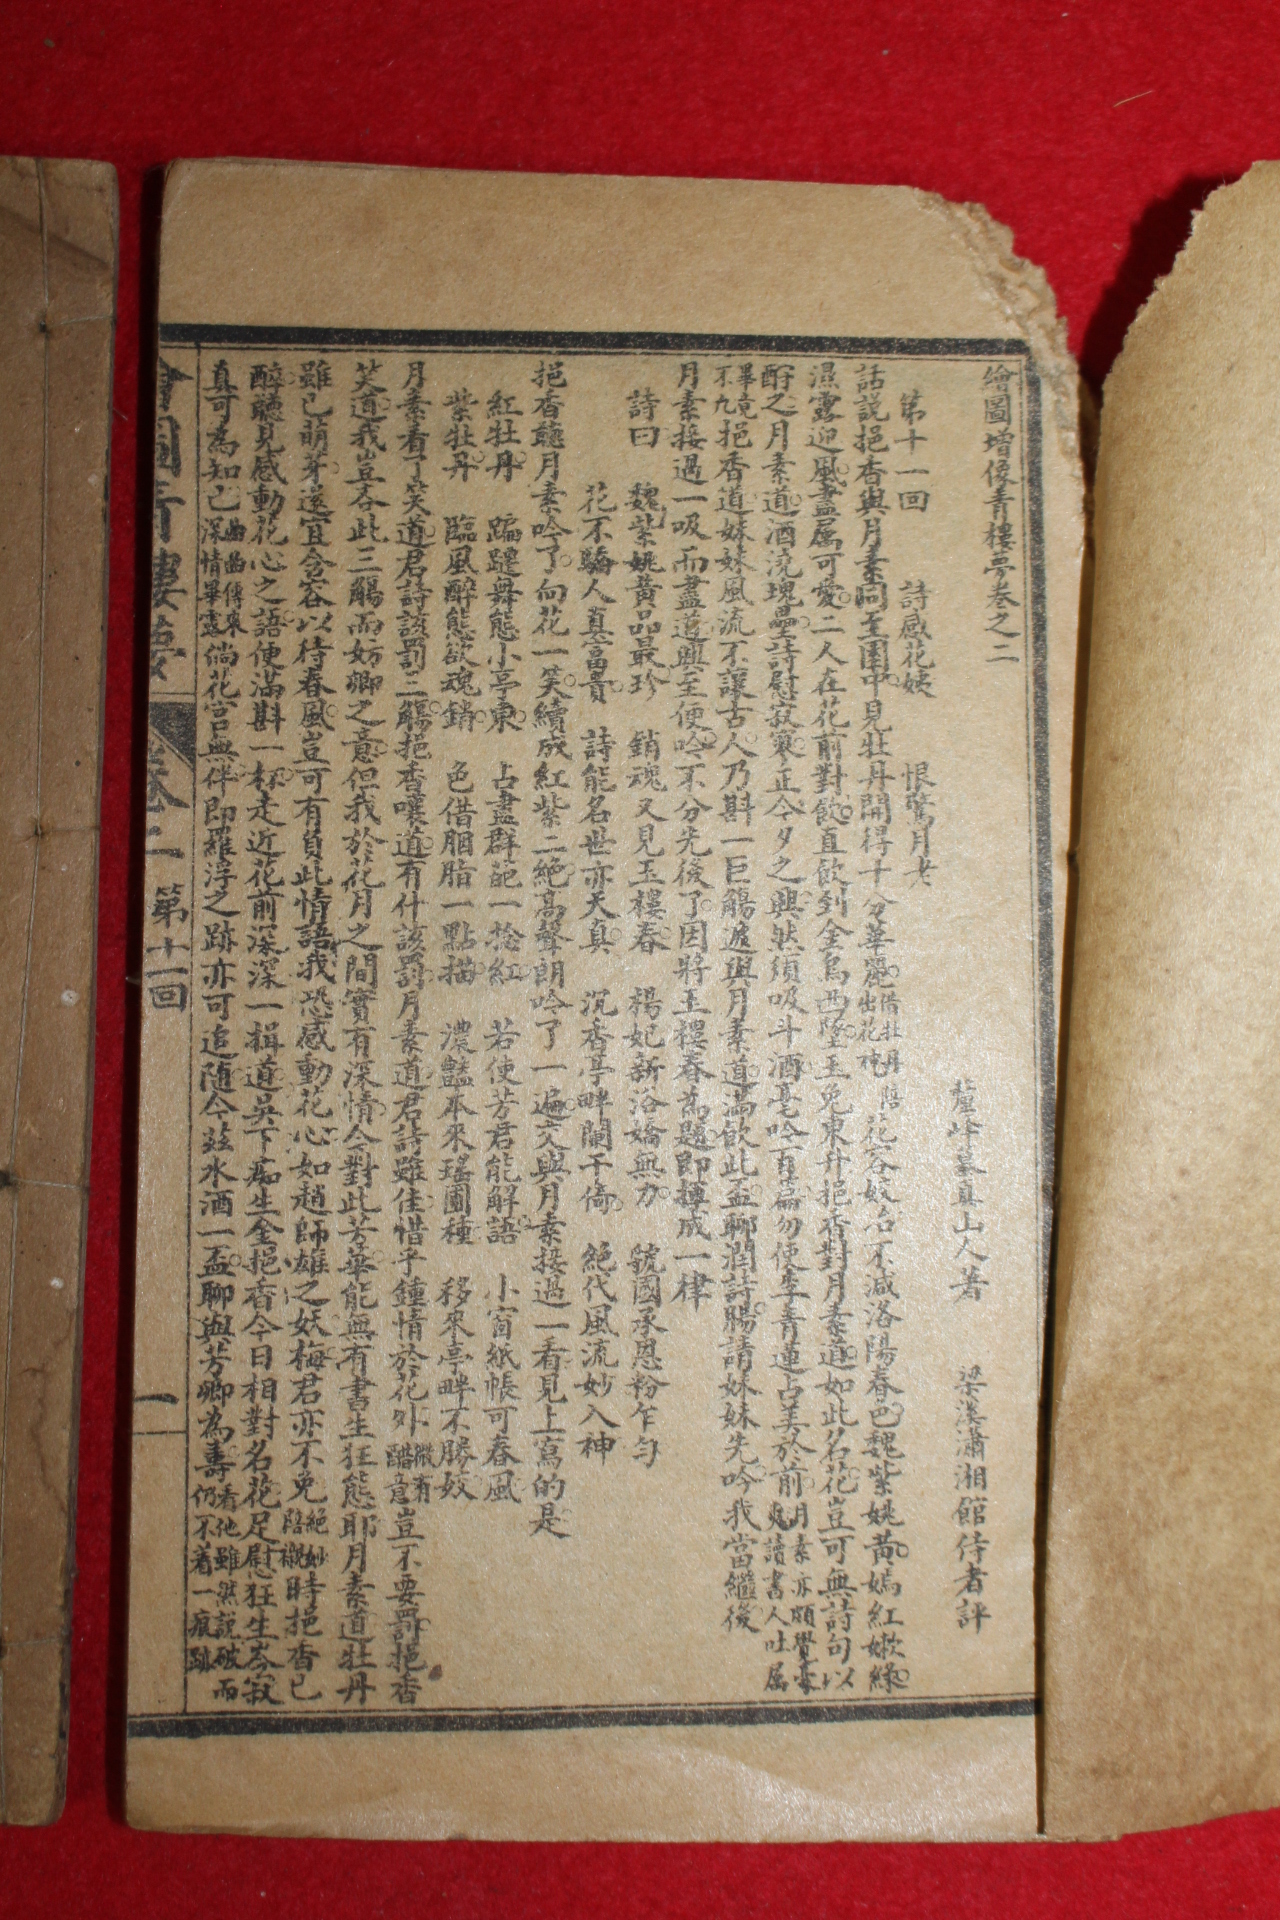 繪圖增像青樓夢卷之二
釐峰慕真山人著　梁溪瀟湘館侍者評
第十一回　詩感花姨　恨驚月老
話說挹香與月素同至園中見牡丹開得十分華麗借牡丹陪出花神花容姣冶不減洛陽春色魏紫姚黃嫣紅嫩綠
濕露迎風盡屬可愛二人在花前對飲直飲到金烏西墜玉兔東升挹香對月素道如此名花豈可無詩句以
酧之月素道酒澆塊壘詩慰寂寞正今夕之興然須吸斗酒毫吟百篇勿使李青蓮占美於前月素亦頗覺豪爽讀書人吐屬
畢竟不凡挹香道妹妹風流不讓古人乃斟一巨觴遞與月素道滿飲此盃聊潤詩腸請妹妹先吟我當繼後
月素接過一吸而盡道興至便吟不分先後了因將玉樓春為題即揮成一律
詩曰　魏紫姚黃品最珍　銷魂又見玉樓春　楊妃新浴嬌無力　虢國承恩粉乍勻
花不驕人真富貴　詩能名世亦天真　沉香亭畔闌干倚　絕代風流妙入神
挹香聽月素吟了向花一笑續成紅紫二絕高聲朗吟了一遍交與月素接過一看見上寫的是
紅牡丹　蹁躚舞態小亭東　占盡群葩一捻紅　若使芳君能解語　小窗紙帳可春風
紫牡丹　臨風醉態欲魂銷　色借胭脂一點描　濃豔本來瑤圃種　移來亭畔不勝姣
月素看了笑道君詩該罰三觴挹香嚷道有什該罰月素道君詩雖佳惜乎鍾情於花外微有醋意豈不要罰挹香
笑道我豈吝此三觴而妨卿之意但我於花月之間實有深情今對此芳華能無有書生狂態耶月素道牡丹
雖已萌芽遂宜含容以待春風豈可有負此情語我恐感動花心如趙師雄之妖梅君亦不免絕妙陪襯時挹香已
醉聽見感動花心之語便滿斟一杯走近花前深深一揖道吳下痴生金挹香今日相對名花足慰狂生岑寂
真可為知己曲曲傳來深情畢露倘花宮無伴即羅浮之跡亦可追隨今茲水酒一盃聊與芳卿為壽看他雖然說破而仍不着一痕跡
繪圖青樓夢　卷二　第十一回　一